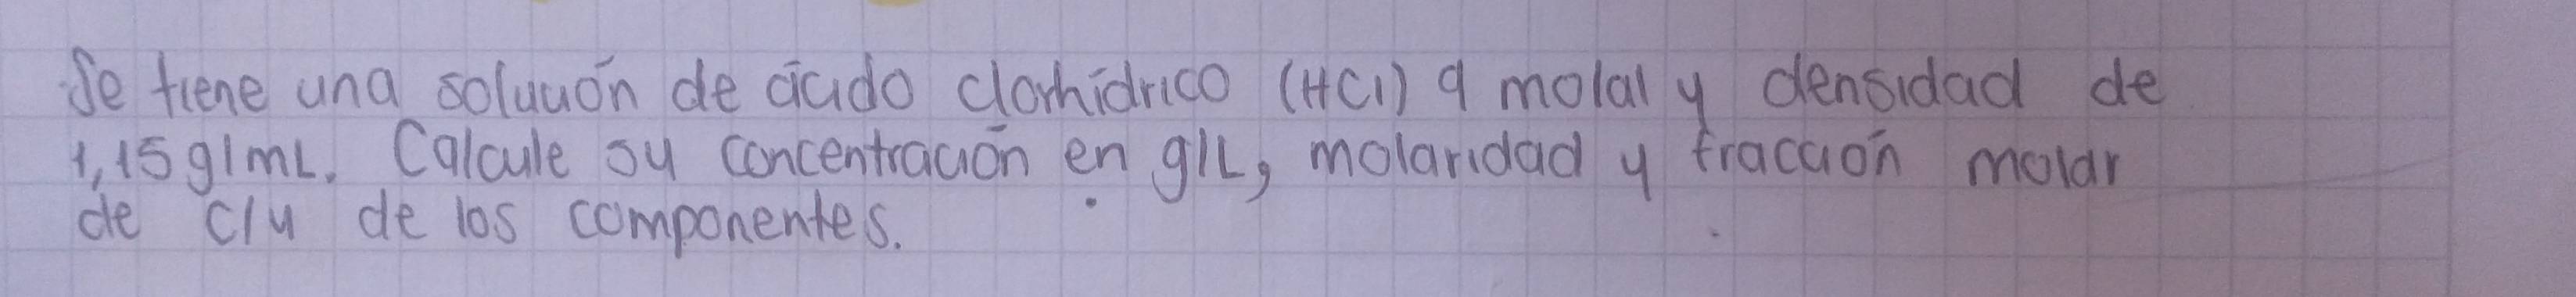 Se tiene una solución de ácido clorhídrico (HCl) 9 molal y densidad de
1,15 g/mL. Calcule su concentración en g/L, molaridad y fracción molar
de c/u de los componentes.